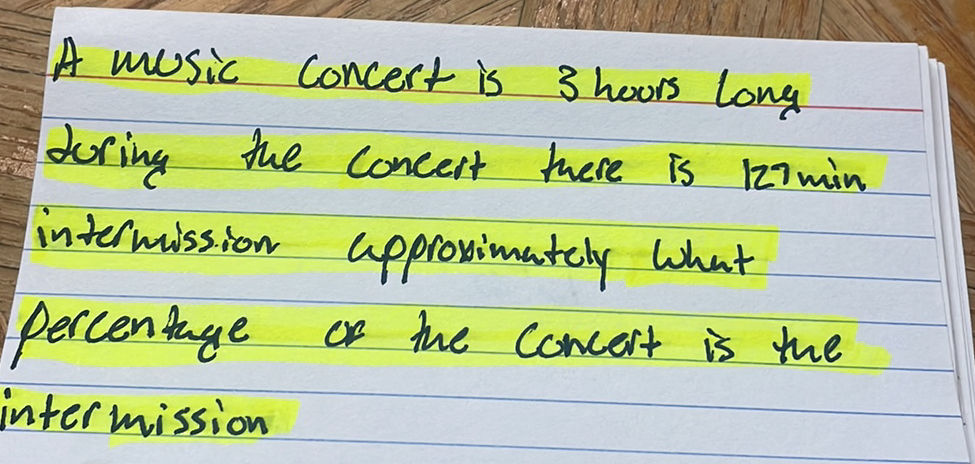 A music concert is 3 hours long
during the concert there is 127 min
intermission approximately what
percentage of the concert is the
intermission